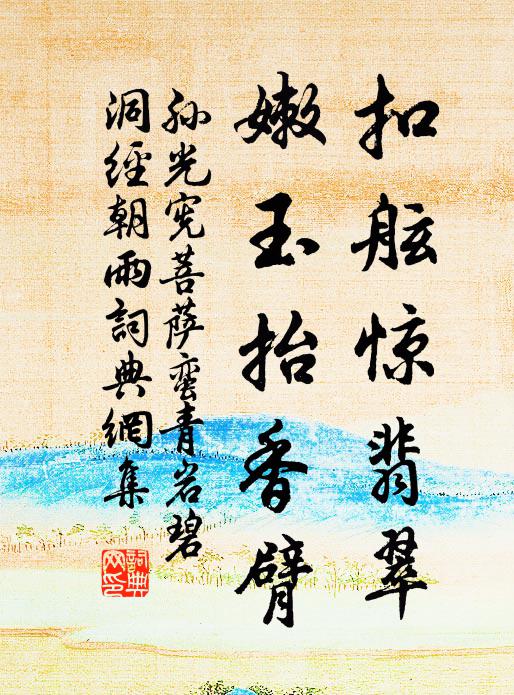 扣舷惊翡翠
嫩玉抬香臂
孙光宪菩萨蛮青岩碧
洞經朝雨詞典網集
詞典网印